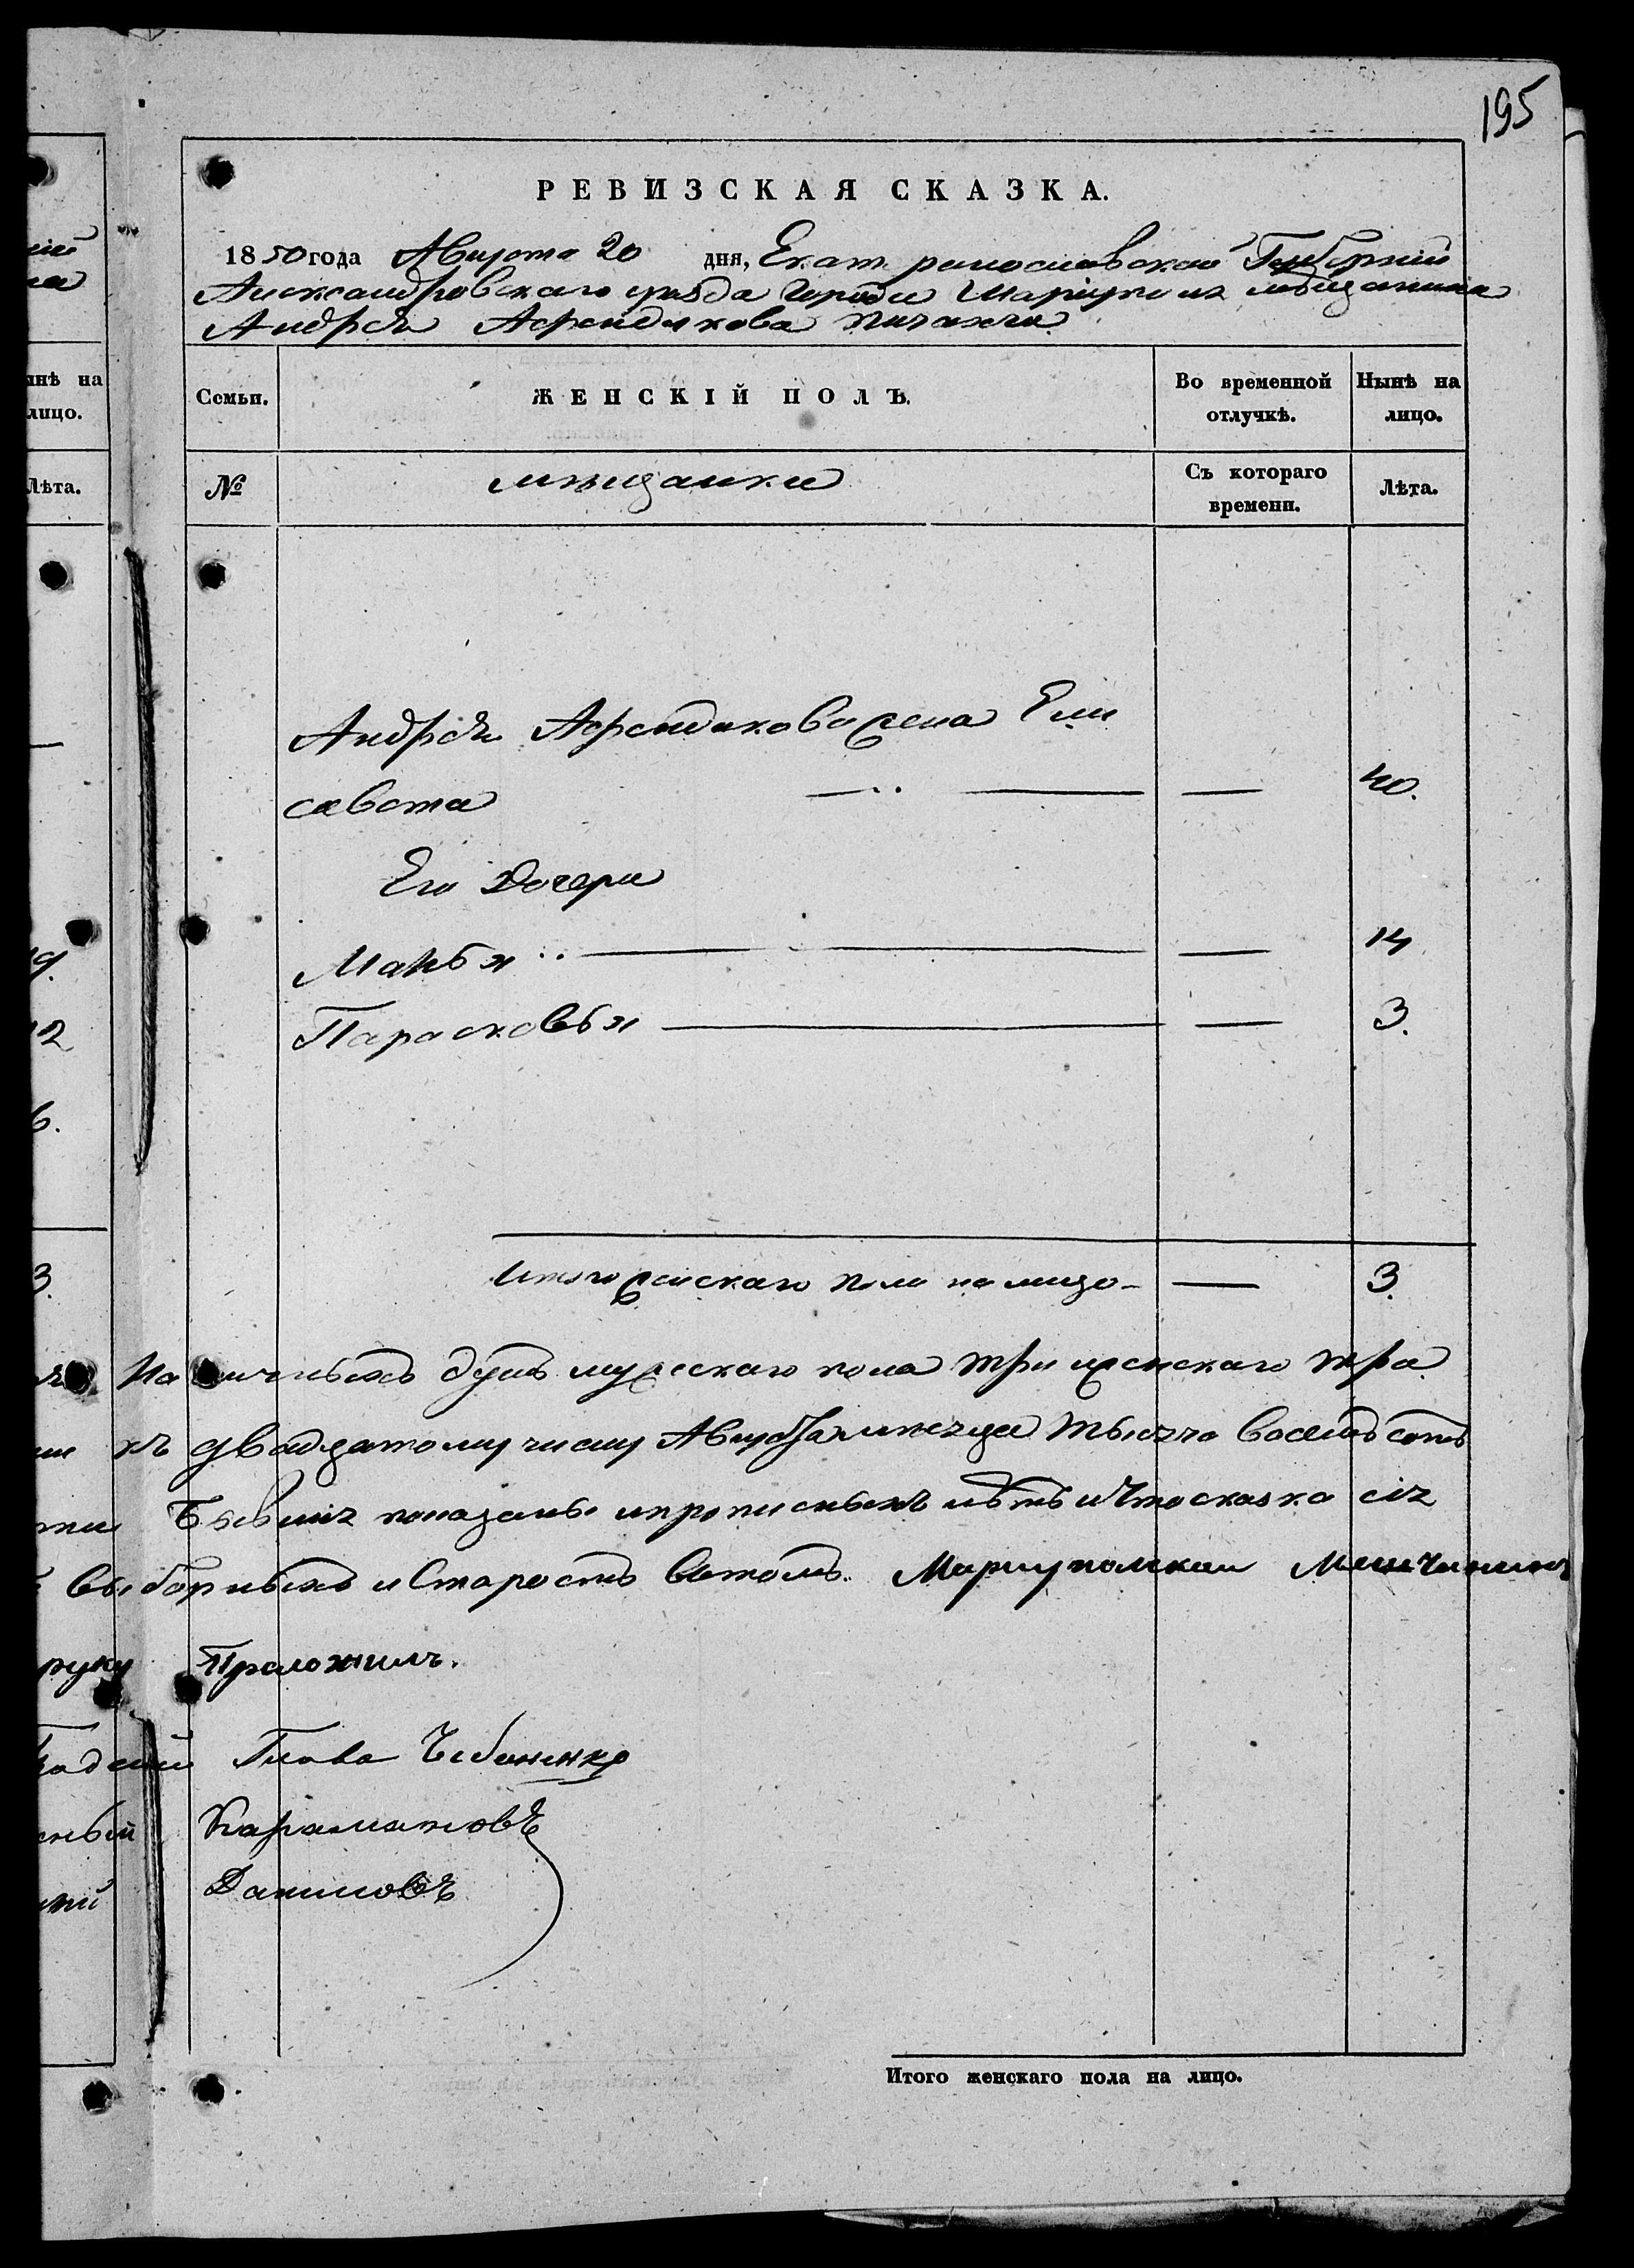 195
РЕВИЗСКАЯ СКАЗКА.
1850 года Августа 20 дня, Екатеринославской Губерніи
Александровскаго уѣзда города Маріуполя мѣщанина
Андрея Афендикова
Семьи. ЖЕНСКІЙ ПОЛЪ. Во временной отлучкѣ. Нынѣ на лицо.
№ мѣщанки Съ котораго времени. Лѣта.
Андрея Афендикова жена Ели
савета — 40.
Его дочери
Марья — 14
Парасковья — 3.
Итого женскаго пола на лицо — 3.
Наличныхъ душъ мужескаго пола три женскаго три
къ двадцатому числу Августа мѣсяца тысяча восемъ сотъ
показаны и прописныхъ нѣтъ и что сказка сія
выборныхъ и старостъ въ томъ. Мариуполской
руку Преложилъ.
Глава Чебаненко
Карамановъ
Даниловъ
Итого женскаго пола на лицо.
нѣ на
лицо.
Лѣта.
12
6.
3.